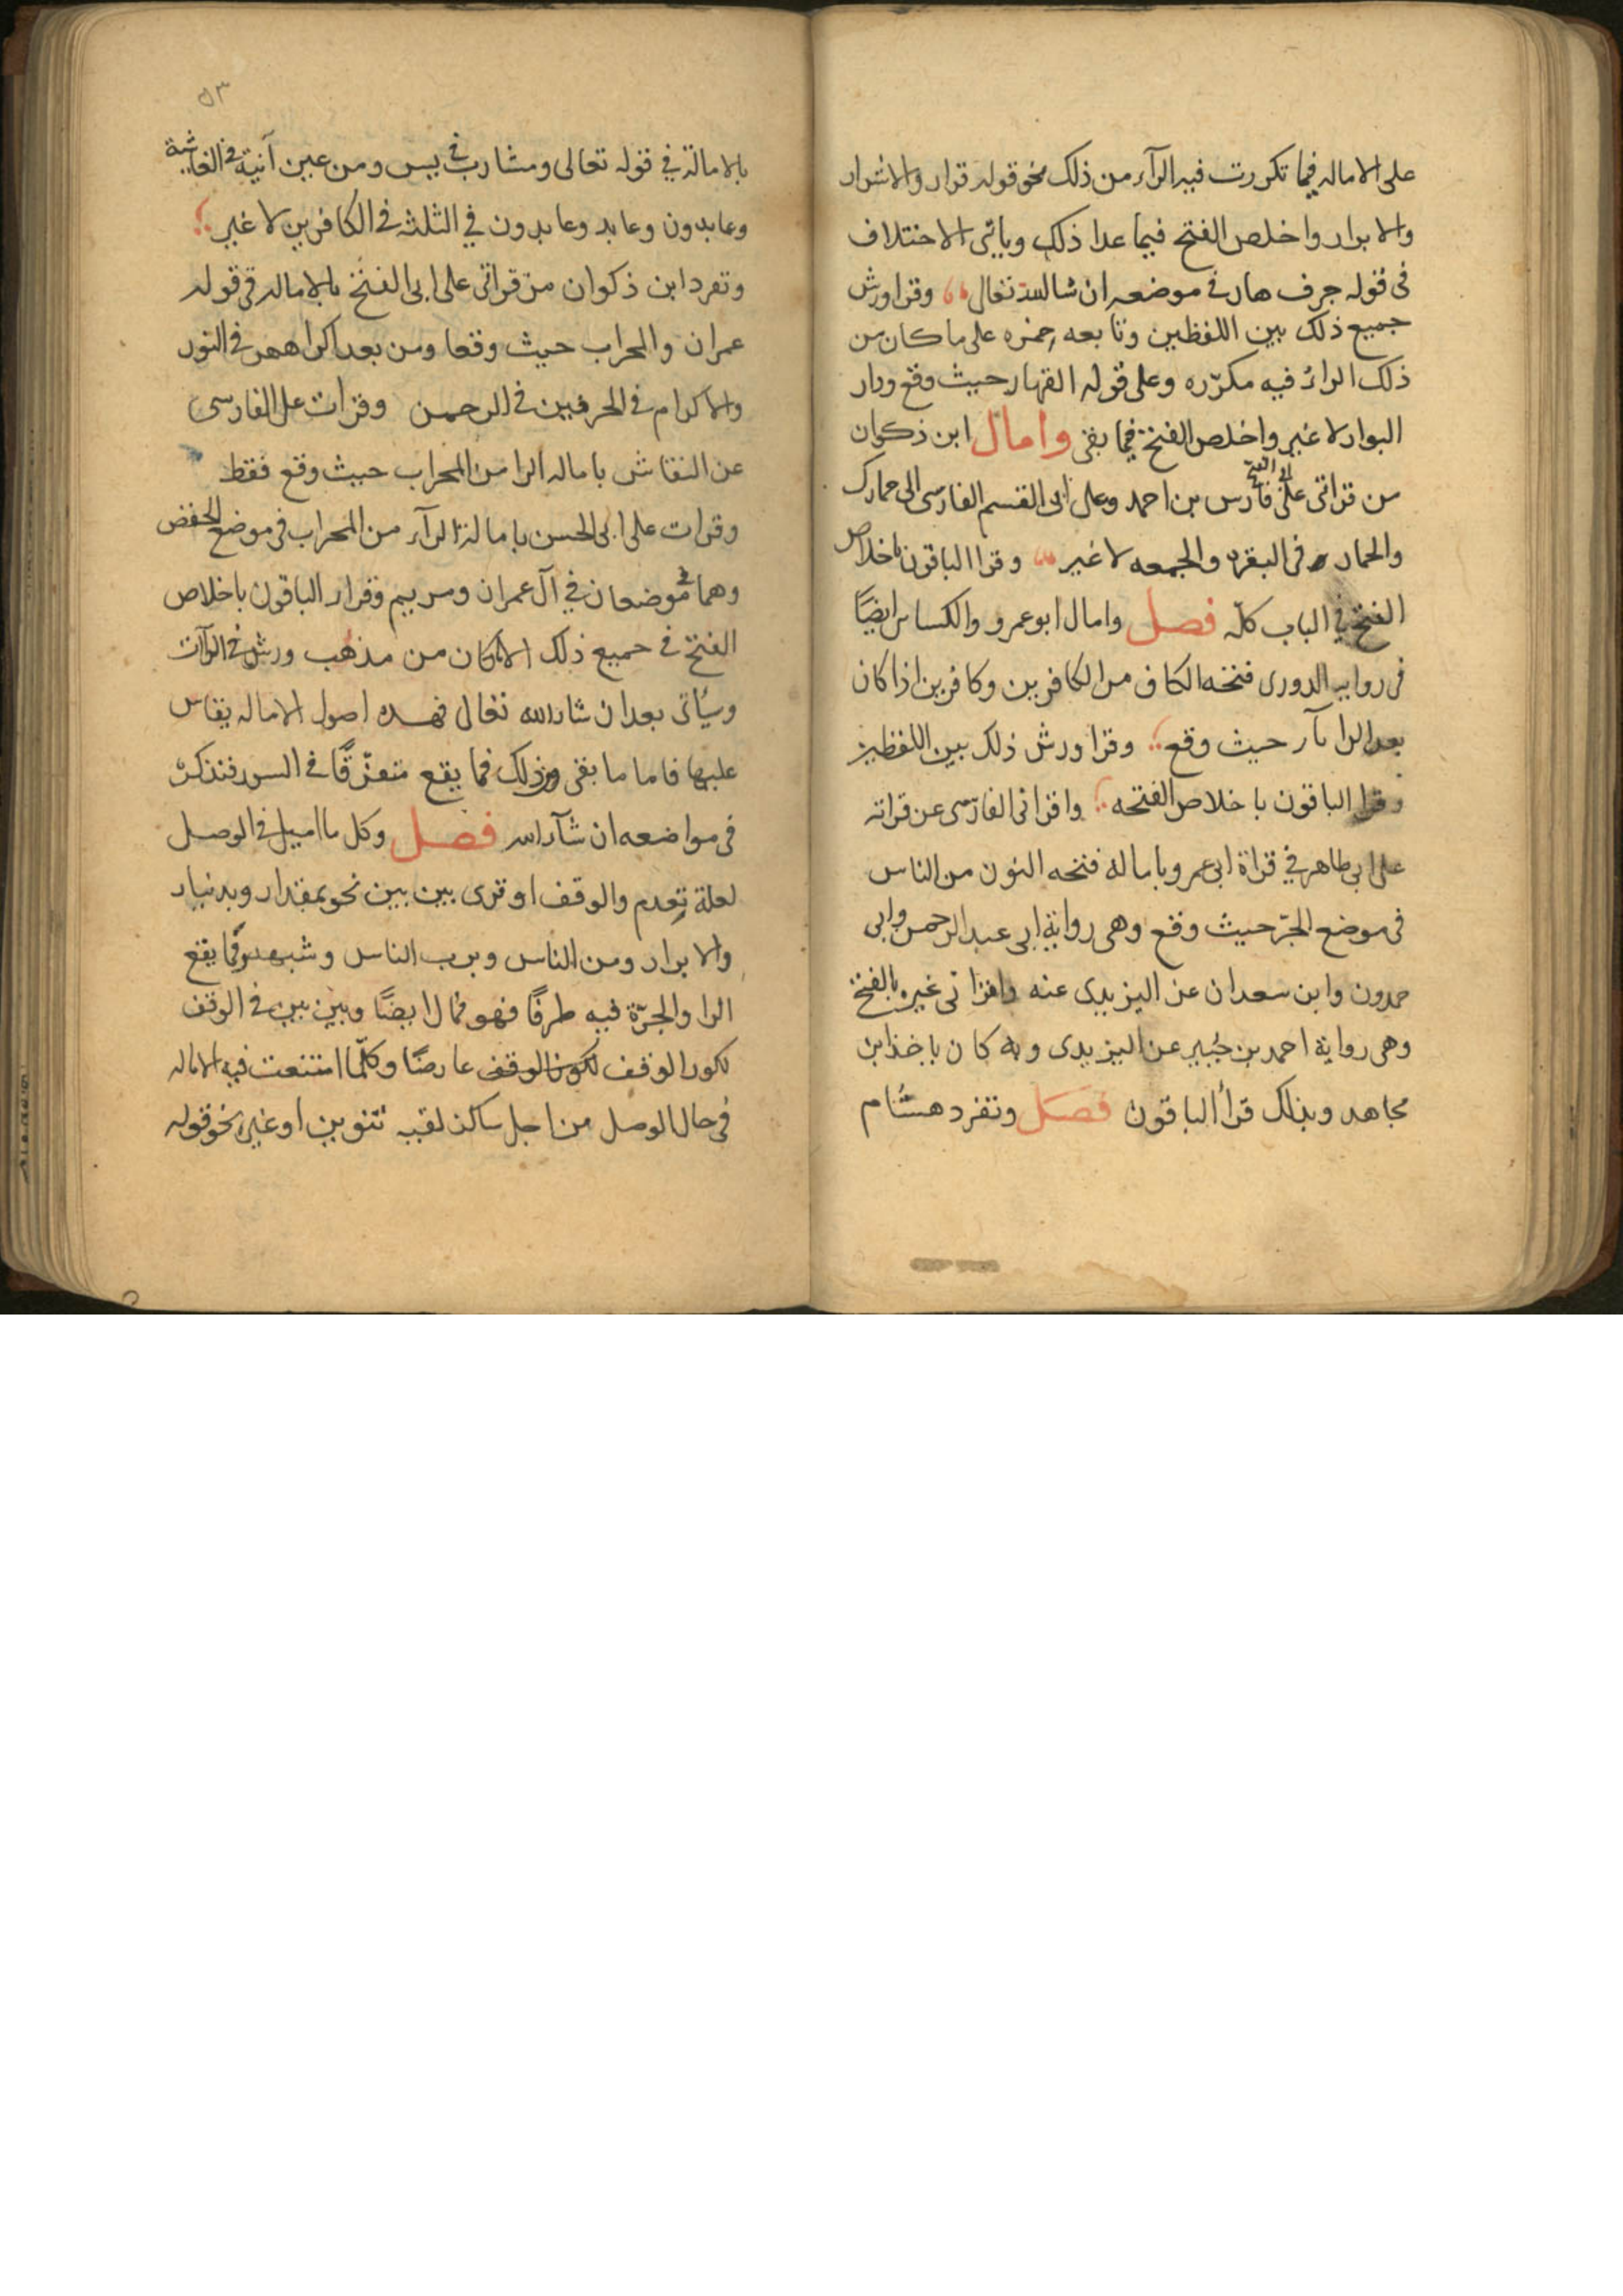 على الاماله فيما تكررت فيه الرآء من ذلك نحو قوله قرار والاشرار
والابرار واخلص الفتح فيما عدا ذلك وياتى الاختلاف
فى قوله جرف هار فى موضعه ان شاالله تعالى وقرا ورش
جميع ذلك بين اللفظين وتابعه حمزه على ما كان من
ذلك الراء فيه مكرّره وعلى قوله القهار حيث وقع ودار
البوار لا غير واخلص الفتح فيما بقى وامال ابن ذكوان
من قراتى على ابى الفتح فارس بن احمد وعلى ابى القسم الفارسى الى حمارك
والحمار فى البقره والجمعه لا غير وقرا الباقون باخلاص
الفتح فى الباب كلّه فصل وامال ابو عمرو والكساى ايضًا
فى روايه الدورى فتحه الكاف من الكافرين وكافرين اذا كان
بعد الرا يآء حيث وقع وقرا ورش ذلك بين اللفظين
وقرا الباقون باخلاص الفتحه واقرانى الفارسى عن قراته
على ابى طاهر فى قراة ابى عمرو باماله فتحه النون من الناس
فى موضع الجرّ حيث وقع وهى رواية ابى عبد الرحمن وابى
حمدون وابن سعدان عن اليزيدى عنه واقرانى غيره بالفتح
وهى رواية احمد بن جُبير عن اليزيدى وبه كان ياخذ ابن
مجاهد وبذلك قرأ الباقون فصل وتفرد هشام
٥٣
بالامالة فى قوله تعالى ومشارب فى يس ومن عين آنية فى الغاشية
وعابدون وعابد وعابدون فى الثلثه فى الكافرين لا غير
وتفرد ابن ذكوان من قراتى على ابى الفتح بالاماله فى قوله
عمران والمحراب حيث وقعا ومن بعد اكراههن فى النور
والاكرام فى الحرفين فى الرحمن وقرات على الفارسى
عن النقاش باماله الرا من المحراب حيث وقع فقط
وقرات على ابى الحسن بامالة الرآء من المحراب فى موضع الخفض
وهما موضعان فى آل عمران ومريم وقرا الباقون باخلاص
الفتح فى جميع ذلك الا ما كان من مذهب ورش فى الرآات
وسيأتى بعد ان شاء الله تعالى فهذه اصول الاماله يقاس
عليها فاما ما بقى من ذلك مما يقع متفرّقًا فى السور فنذكره
فى مواضعه ان شآء الله فصل وكل ما اميل فى الوصل
لعلة تعدم والوقف او قرى بين بين نحو بمقدار وبدينار
والابرار ومن الناس وبرب الناس وشبهه مما يقع
الرا والجرّة فيه طرفًا فهو ممال ايضًا وبين بين فى الوقف
لكون الوقف لكون الوقف عارضًا وكلّما امتنعت فيه الاماله
فى حال الوصل من اجل ساكن لقيه تنوين او غيره نحو قوله